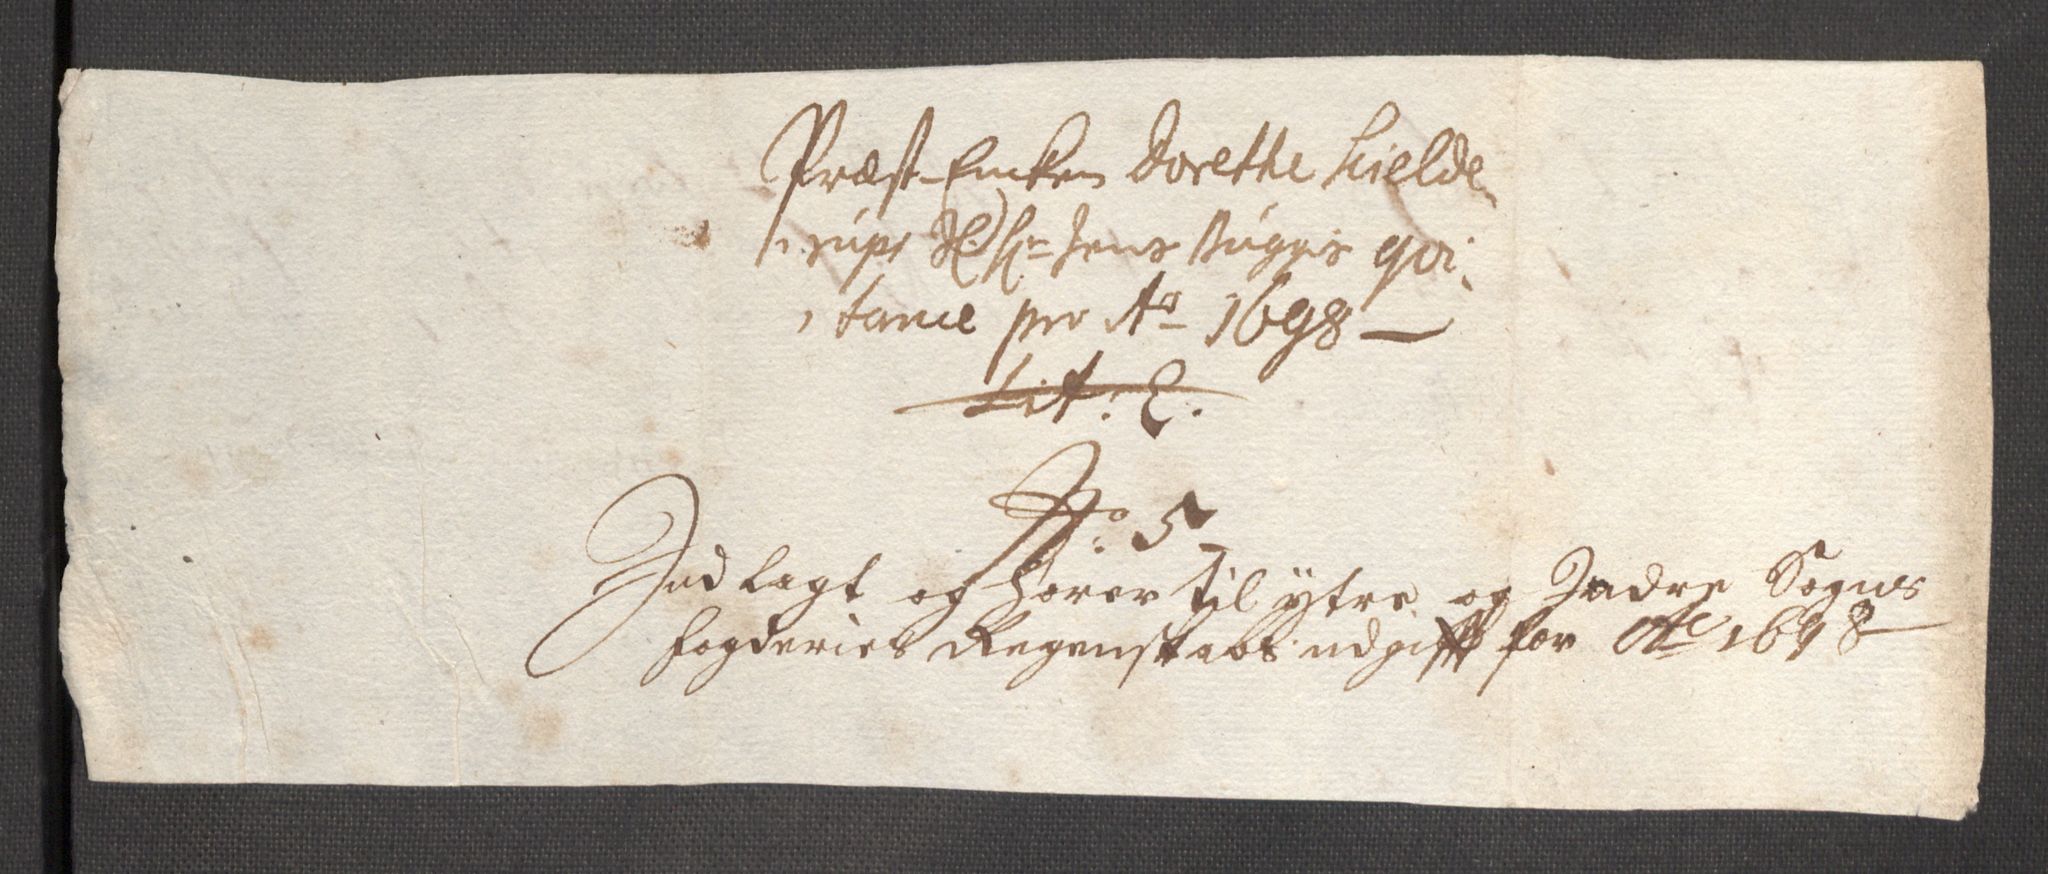 Præst-Enken Dorethe Hielde
rups Sl. Hr Jens Bugges qvi
tance pro Ao 1698
Lit: E.
No: 5
Indlagt og hører til ÿtre og Indre Sogns
fogderies Regenskabs udgifft for Ao 1698